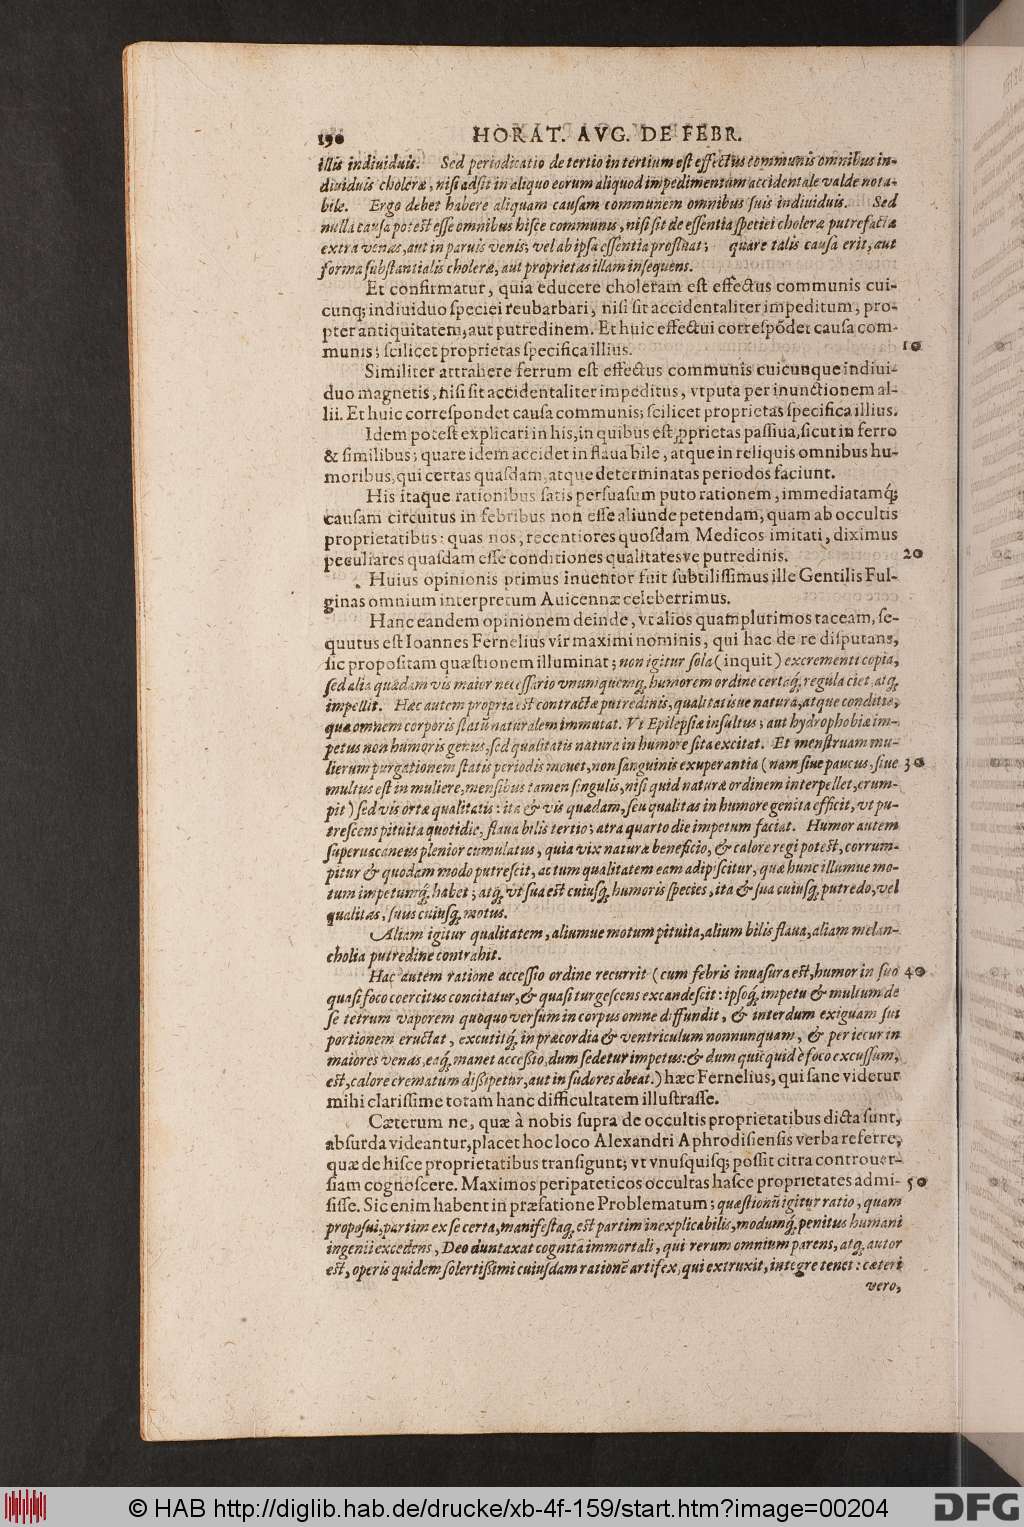 190 HORAT. AVG. DE FEBR.
illis indiuiduis. Sed periodicatio de tertio in tertium est effectus communis omnibus in-
diuiduis choleræ, nisi adsit in aliquo eorum aliquod impedimentum accidentale valde nota-
bile. Ergo debet habere aliquam causam communem omnibus suis indiuiduis. Sed
nulla causa potest esse omnibus hisce communis, nisi sit de essentia speciei choleræ putrefactæ
extra venas, aut in paruis venis; vel ab ipsa essentia profluat; quare talis causa erit, aut
forma substantialis choleræ, aut proprietas illam insequens.
Et confirmatur, quia educere choleram est effectus communis cui-
cunq; indiuiduo speciei reubarbari, nisi sit accidentaliter impeditum, pro-
pter antiquitatem, aut putredinem. Et huic effectui correspõdet causa com-
munis; scilicet proprietas specifica illius. 10
Similiter attrahere ferrum est effectus communis cuicunque indiui-
duo magnetis, nisi sit accidentaliter impeditus, vtputa per inunctionem al-
lii. Et huic correspondet causa communis; scilicet proprietas specifica illius.
Idem potest explicari in his, in quibus est ꝓprietas passiua, sicut in ferro
& similibus; quare idem accidet in flaua bile, atque in reliquis omnibus hu-
moribus, qui certas quasdam, atque determinatas periodos faciunt.
His itaque rationibus satis persuasum puto rationem, immediatamq́;
causam circuitus in febribus non esse aliunde petendam, quam ab occultis
proprietatibus: quas nos, recentiores quosdam Medicos imitati, diximus
peculiares quasdam esse conditiones qualitatesve putredinis. 20
Huius opinionis primus inuentor fuit subtilissimus ille Gentilis Ful-
ginas omnium interpretum Auicennæ celeberrimus.
Hanc eandem opinionem deinde, vt alios quamplurimos taceam, se-
quutus est Ioannes Fernelius vir maximi nominis, qui hac de re disputans,
sic propositam quæstionem illuminat; non igitur sola (inquit) excrementi copia,
sed alia quædam vis maior necessario vnumquemq́; humorem ordine certaq́; regula ciet, atq́;
impellit. Hæc autem propria est contractæ putredinis, qualitatisue natura, atque conditio,
quæ omnem corporis statũ naturalem immutat. Vt Epilepsiæ insultus; aut hydrophobiæ im-
petus non humoris genus, sed qualitatis natura in humore sita excitat. Et menstruam mu-
lierum purgationem statis periodis mouet, non sanguinis exuperantia (nam siue paucus, siue 30
multus est in muliere, mensibus tamen singulis, nisi quid naturæ ordinem interpellet, erum-
pit) sed vis ortæ qualitatis: ita & vis quædam, seu qualitas in humore genita efficit, vt pu-
trescens pituita quotidie, flaua bilis tertio; atra quarto die impetum faciat. Humor autem
superuacaneus plenior cumulatus, quia vix naturæ beneficio, & calore regi potest, corrum-
pitur & quodam modo putrescit, ac tum qualitatem eam adipiscitur, quæ hunc illumue mo-
tum impetumq́; habet; atq́; vt sua est cuiusq́; humoris species, ita & sua cuiusq́; putredo, vel
qualitas, suus cuiusq́; motus.
Aliam igitur qualitatem, aliumue motum pituita, alium bilis flaua, aliam melan-
cholia putredine contrahit.
Hac autem ratione accessio ordine recurrit (cum febris inuasura est, humor in suo 40
quasi foco coercitus concitatur, & quasi turgescens excandescit: ipsoq́; impetu & multum de
se tetrum vaporem quoquo versum in corpus omne diffundit, & interdum exiguam sui
portionem eructat, excutitq́; in præcordia & ventriculum nonnunquam, & per iecur in
maiores venas, eaq́; manet accessio, dum sedetur impetus: & dum quicquid è foco excussum,
est, calore crematum dissipetur, aut in sudores abeat.) hæc Fernelius, qui sane videtur
mihi clarissime totam hanc difficultatem illustrasse.
Cæterum ne, quæ à nobis supra de occultis proprietatibus dicta sunt,
absurda videantur, placet hoc loco Alexandri Aphrodisiensis verba referre,
quæ de hisce proprietatibus transigunt; vt vnusquisq; possit citra controuer-
siam cognoscere. Maximos peripateticos occultas hasce proprietates admi- 50
sisse. Sic enim habent in præfatione Problematum; quæstionũ igitur ratio, quam
proposui, partim ex se certa, manifestaq́; est partim inexplicabilis, modumq́; penitus humani
ingenii excedens, Deo duntaxat cognita immortali, qui rerum omnium parens, atq́; autor
est, operis quidem solertissimi cuiusdam rationẽ artifex, qui extruxit, integre tenet: cæteri
vero,
© HAB http://diglib.hab.de/drucke/xb-4f-159/start.htm?image=00204
DFG